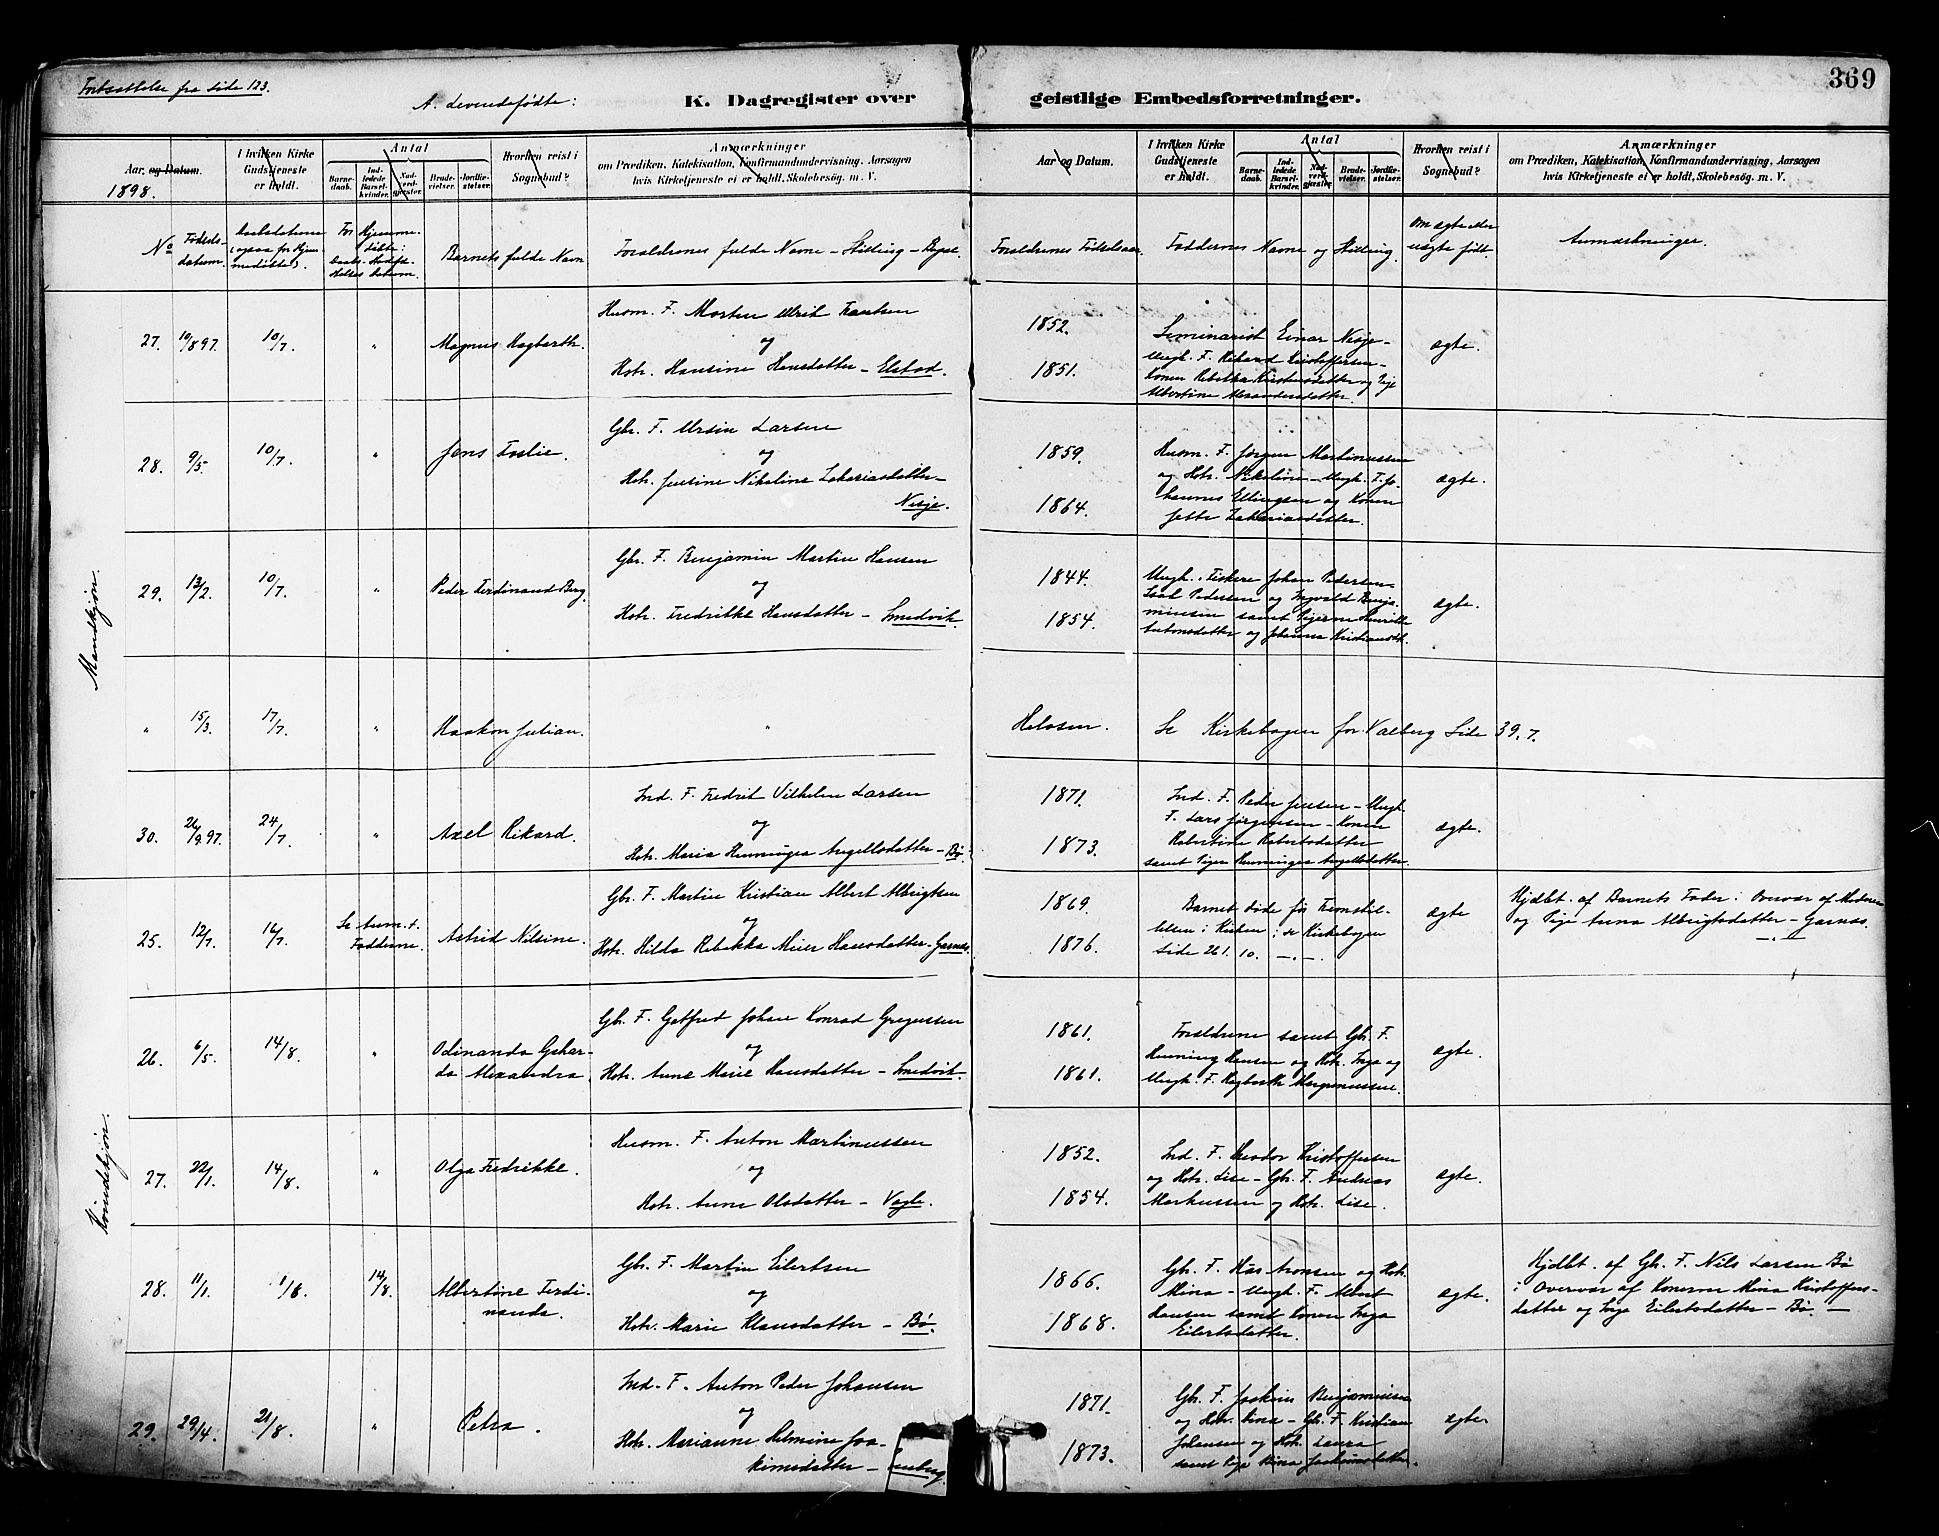 Fortsættelse fra side 123.
A. Levendefødte:
K. Dagregister over
geistlige Embedsforretninger.
369
Aar og Datum.
1898.
I hvilken Kirke Gudstjeneste er holdt.
Antal
Barnedaab.
Indledede Barselkvinder.
Nadverdgjæster.
Brudevielser.
Jordfæstelser.
Hvorhen reist i Sognebud?
Anmærkninger
om Prædiken, Katekisation, Konfirmandundervisning, Aarsagen
hvis Kirketjeneste ei er holdt, Skolebesøg. m. V.
Aar og Datum.
I hvilken Kirke Gudstjeneste er holdt.
Antal
Barnedaab.
Indledede Barselkvinder.
Nadverdgjæster.
Brudevielser.
Jordfæstelser.
Hvorhen reist i Sognebud?
Anmærkninger
om Prædiken, Katekisation, Konfirmandundervisning, Aarsagen
hvis Kirketjeneste ei er holdt, Skolebesøg. m. V.
No
Fødselsdatum.
Barnets fulde Navn
Forældrenes fulde Navne - Stilling - Bopæl.
Forældrenes Fødselsaar.
Faddernes Navne og Stilling.
Om ægte eller uægte født.
Anmærkninger.
Mandkjøn.
27. 19/8 97. 10/7. " Magnus Hagbarth.
Husm. F. Morten Ulrik
og
Hstr. Hansine Hansdatter - Elstad.
1852.
1851.
Seminarist Einar Nesje -
Ungk. F. Rikard Kristoffersen -
Konen Rebekka Kristensdatter og Pige
Albertine
ægte.
28. 9/5. 10/7. " Jens Toslie.
Gbr. F. Ursin Larsen
og
Hstr. Jensine Nikoline Zakariasdatter -
Nesje.
1859.
1864.
Husm. F. Jørgen Martinussen
og Hstr. Nikoline - Ungk. F. Johannes
Ellingsen og Konen
Jette Zakariasdatter.
ægte.
29. 13/2. 10/7. " Peder Ferdinand Berg.
Gbr. F. Benjamin Martin Hansen
og
Hstr. Fredrikke Hansdatter - Smedvik.
1844.
1854.
Ungk. Fiskere Johan Pedersen -
Isak Pedersen og Ingvald Benjaminsen
samt Pigerne
Antonsdatter og Johanna Kristiansdtr.
ægte.
" 15/3. 17/7. " Haakon Julian. "
Helosen.
Se Kirkebogen for Valberg Side 39. 7.
30. 26/9 97. 24/7. " Axel Rikard.
Ind. F. Fredrik Vilhelm Larsen
og
Hstr. Maria Henningea Angellsdatter - Bø.
1871.
1873.
Ind. F. Peder Jensen - Ungk.
F. Lars Jørgensen - Konen
Robertine Robertsdatter
samt Pigen Henningea Angellsdatter.
ægte.
Kvindekjøn.
25. 12/7. 16/7. Se Anm. + Fadderne. Astrid Nilsine.
Gbr. F. Martin Kristian Albert Albrigtsen
og
Hstr. Hilda Rebekka Meier Hansdatter - Garnes.
1869.
1876.
Barnet døde før Fremstillelsen
i Kirken; se Kirkebogen
Side 261. 10. -.-.
ægte
Hjdøbt. af Barnets Fader i Overvær af Moderen
og Pige Anna Albrigtsdatter - Garnes.
26. 6/5. 14/8. " Odinanda Geharda Alexandra.
Gbr. F. Gotfred Johan Konrad Gregersen
og
Hstr. Anne Marie Hansdatter - Smedvik.
1861.
1861.
Forældrene samt Gbr. F.
Henning Hansen og Hstr. Inga og
Ungk. F. Hagbarth
ægte.
27. 22/1. 14/8. " Olga Fredrikke.
Husm. F. Anton Martinussen
og
Hstr. Anne Olsdatter - Vagle.
1852.
1854.
Ind. F. Teodor Kristoffersen
og Hstr. Lise - Gbr. F. Andreas
Markussen og Hstr. Lise.
ægte.
28. 11/1. 1/8. 14/8. Albertine Ferdinanda.
Gbr. F. Martin Eilertsen
og
Hstr. Marie Klausdatter - Bø.
1866.
1868.
Gbr. F. Aronsen og Hstr.
Mina - Ungk. F. Albert
Hansen samt Konen Inga
Eilertsdatter.
ægte.
Hjdøbt. af Gbr. F. Nils Larsen Bø
i Overvær af Konerne Mina Kristoffersdatter
og Inga Eilertsdatter - Bø. -
29. 29/4. 21/8. " Petra.
Ind. F. Anton Peder Johansen
og
Hstr. Marianne Helmine Joakimsdatter -
1871.
1873.
Gbr. F. Joakim Benjaminsen
og Hstr. Lina - Gbr. F. Kristian
Johansen og Hstr. Laura
samt Pige Joakimsdatter.
ægte.